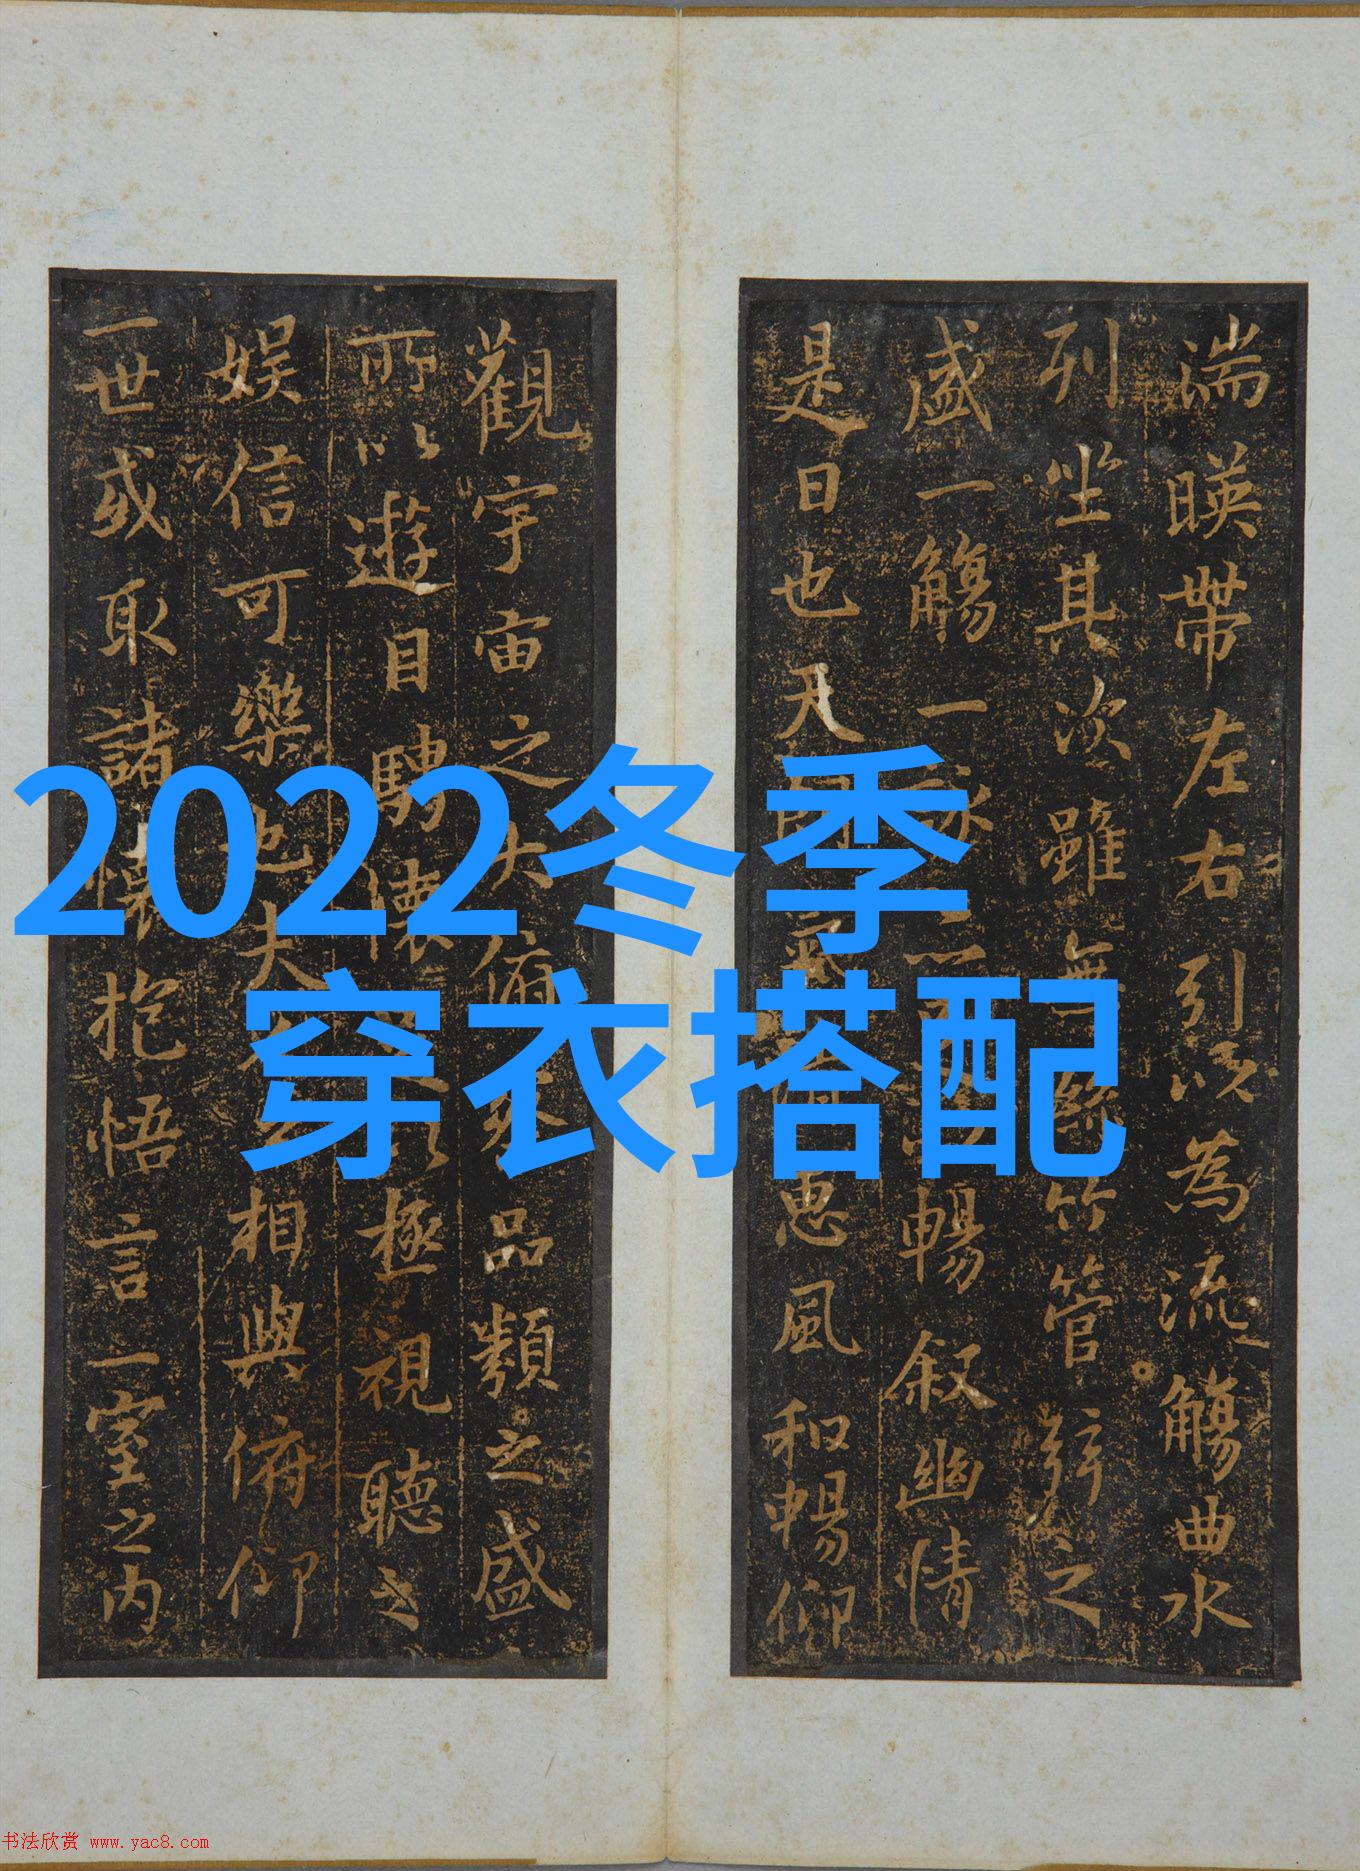 2022冬季
穿衣搭配
湍暎帶左右引以為流觴曲水
列坐其次雖無絲竹管弦之
盛一觴一暢叙幽情
是日也天惠風和暢仰
觀宇宙之大俯品類之盛
所以遊目騁懷極視聽之
娱信可樂也夫相與俯仰
一世或取諸懷抱悟言一室之內
书法欣赏 www.yac8.com